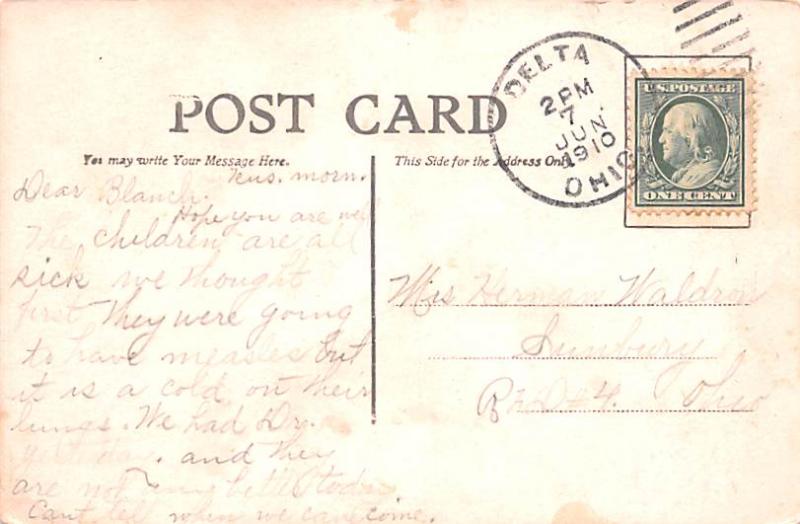 POST CARD
DELTA
2 PM
7
JUN
1910
OHIO
U.S. POSTAGE
ONE CENT
You may write Your Message Here.
This Side for the Address Only
Tues. morn.
Dear Blanch.
Hope you are well
The children are all
sick we thought
first they were going
to have measles but
it is a cold on their
lungs. We had Dr.
yesterday. and they
are not any better today
Cant tell when we can come.
Mrs Herman Waldron
Sunbury
R F D #4. Ohio